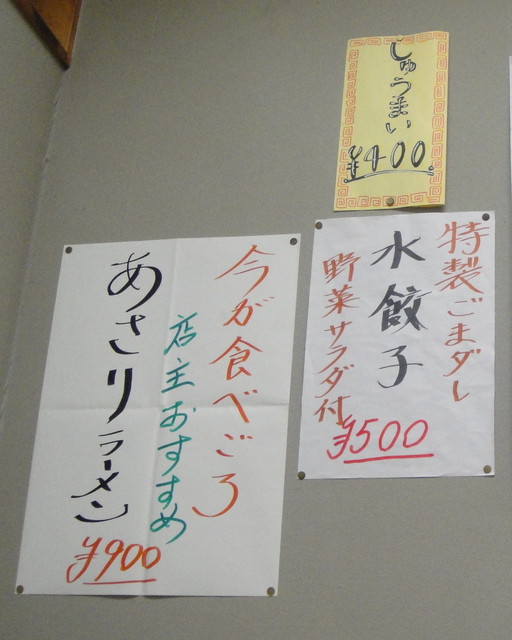 しゅうまい
¥400.
特製ごまダレ
水餃子
野菜サラダ付
¥500
今が食べごろ
店主おすすめ
あさりラーメン
¥900